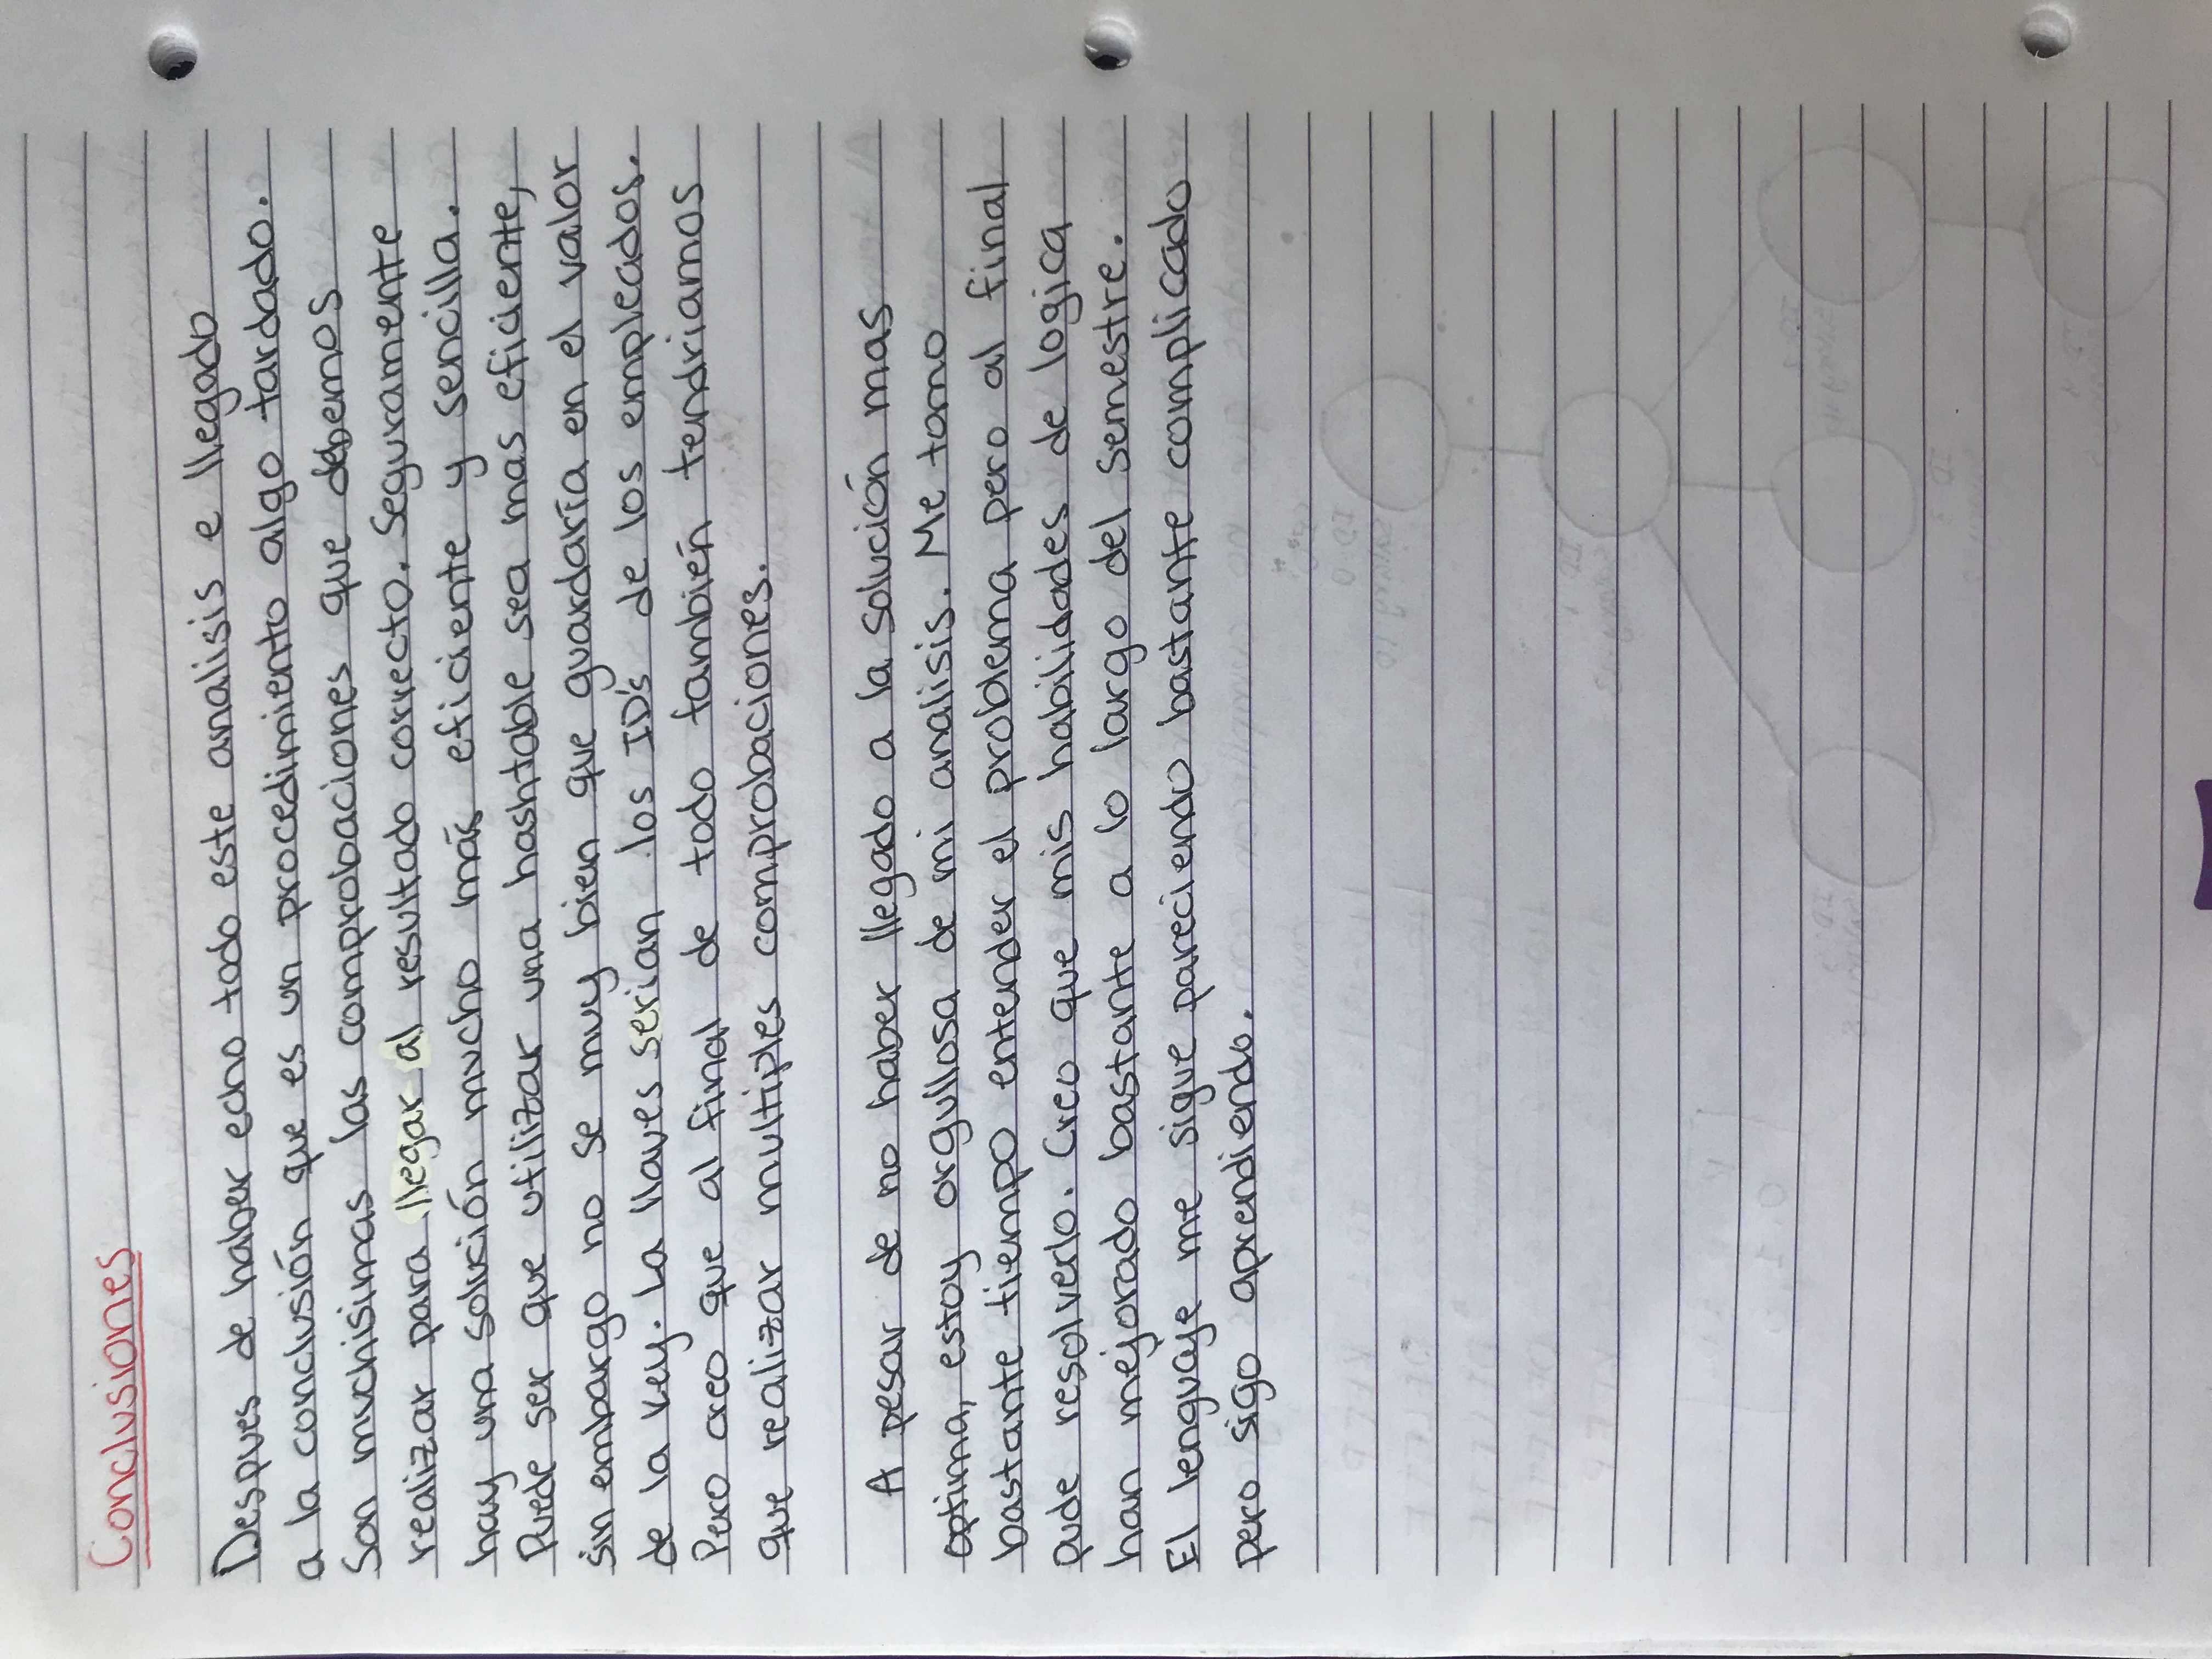 Conclusiones
Despues de haber echo todo este analisis e llegado
a la conclusión que es un procedimiento algo tardado.
Son muchisimas las comprobaciones que debemos
realizar para llegar al resultado correcto. Seguramente
hay una solución mucho más eficiente y sencilla.
Puede ser que utilizar una hashtable sea mas eficiente,
sin embargo no se muy bien que guardaría en el valor
de la key. La llaves serian los ID's de los empleados.
Pero creo que al final de todo también tendriamos
que realizar multiples comprobaciones.
A pesar de no haber llegado a la solución mas
optima, estoy orgullosa de mi analisis. Me tomo
bastante tiempo entender el problema pero al final
pude resolverlo. Creo que mis habilidades de logica
han mejorado bastante a lo largo del semestre.
El lenguaje me sigue pareciendo bastante complicado
pero sigo aprendiendo.